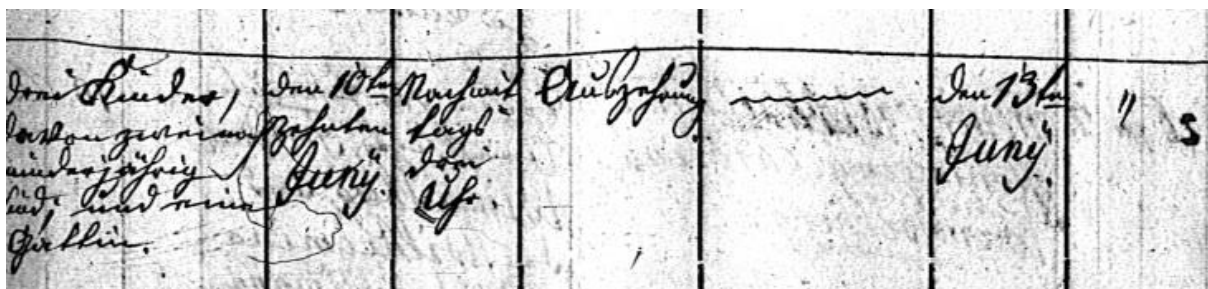 drei Kinder,
davon zwei noch
minderjährig
sind, und eine
Gattin.
den 10ten
zehnten
Juny.
Nachmit
tags
drei
Uhr.
Auszehrung
den 13ten
Juny.
"